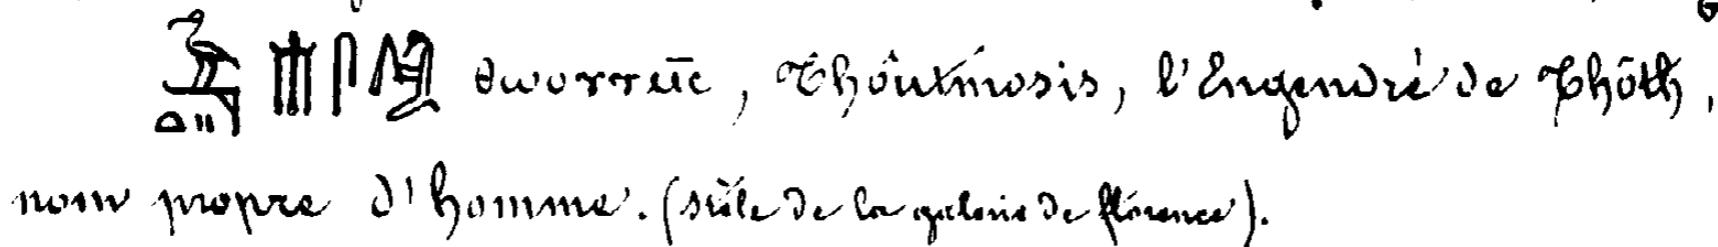 𓅝𓏏𓏭𓄟𓋴 ⲑⲱⲟⲩⲧⲙ̅ⲥ, Thôutmosis, l'Engendré de Thôth,
nom propre d'homme. (stèle de la galerie de florence).